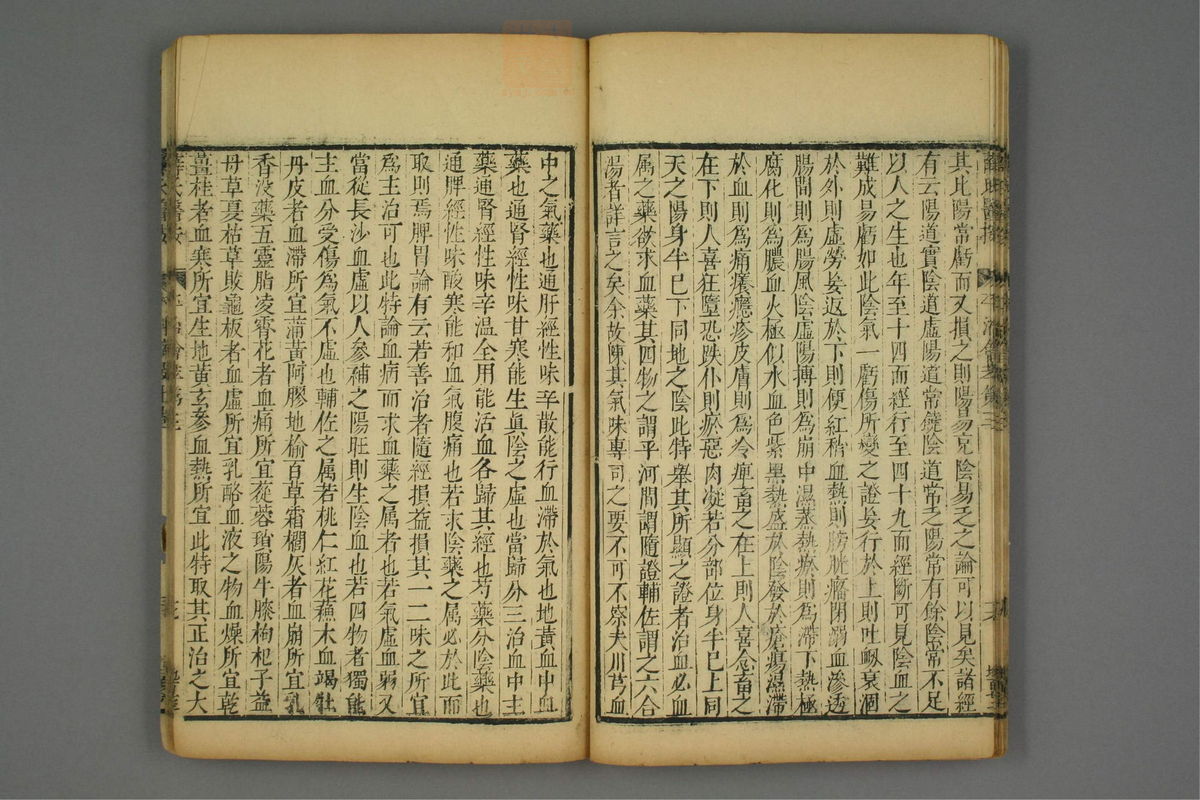 其比陽常虧而又損之則陽易亢陰易乏之論可以見矣諸經
有云陽道實陰道虛陽道常饒陰道常乏陽常有餘陰常不足
以人之生也年至十四而經行至四十九而經斷可見陰血之
難成易虧如此陰氣一虧傷所變之證妄行於上則吐衄衰涸
於外則虛勞妄返於下則便紅稍血熱則膀胱癃閉溺血滲透
腸間則為腸風陰虛陽搏則為崩中濕蒸熱瘀則為滯下熱極
腐化則為膿血火極似水血色紫黑熱盛於陰發於瘡瘍濕滯
於血則為痛癢癮疹皮膚則為冷痺畜之在上則人喜忘畜之
在下則人喜狂墮恐跌仆則瘀惡肉凝若分部位身半已上同
天之陽身半已下同地之陰此特舉其所顯之證者治血必血
属之藥欲求血藥其四物之謂乎河間謂隨證輔佐謂之六合
湯者詳言之矣余故陳其氣味專司之要不可不察夫川芎血
中之氣藥也通肝經性味辛散能行血滯於氣也地黃血中血
藥也通腎經性味甘寒能生真陰之虛也當歸分三治血中主
藥通腎經性味辛溫全用能活血各歸其經也芍藥分陰藥也
通脾經性味酸寒能和血氣腹痛也若求陰藥之属必於此而
取則焉脾胃論有云若善治者隨經損益損其一二味之所宜
為主治可也此特論血病而求血藥之属者也若氣虛血弱又
當從長沙血虛以人參補之陽旺則生陰血也若四物者獨能
主血分受傷為氣不虛也輔佐之属若桃仁紅花蘇木血竭牡
丹皮者血滯所宜蒲黃阿膠地榆百草霜櫚灰者血崩所宜乳
香没藥五靈脂凌霄花者血痛所宜蓯蓉瑣陽牛膝枸杞子益
母草夏枯草敗龜板者血虛所宜乳酪血液之物血燥所宜乾
薑桂者血寒所宜生地黃玄參血熱所宜此特取其正治之大